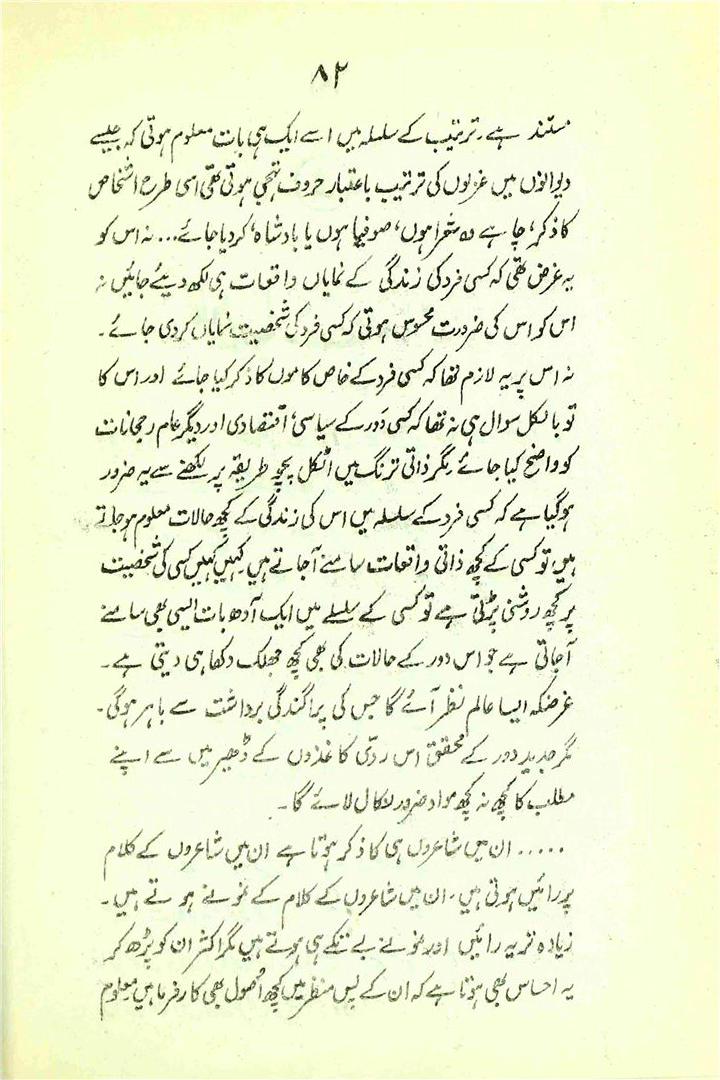 ۸۲
مستند ہے۔ ترتیب کے سلسلہ میں اسے ایک ہی بات معلوم ہوتی کہ جیسے
دیوانوں میں غزلوں کی ترتیب باعتبار حروف تہجی ہوتی تھی اسی طرح اشخاص
کا ذکر، چاہے وہ شعرا ہوں، صوفیا ہوں یا بادشاہ، کر دیا جائے... نہ اس کو
یہ غرض تھی کہ کسی فرد کی زندگی کے نمایاں واقعات ہی لکھ دیئے جائیں نہ
اس کو اس کی ضرورت محسوس ہوتی کہ کسی فرد کی شخصیت نمایاں کر دی جائے۔
نہ اس پر یہ لازم تھا کہ کسی فرد کے خاص کاموں کا ذکر کیا جائے اور اس کا
تو بالکل سوال ہی نہ تھا کہ کسی دَور کے سیاسی، اقتصادی اور دیگر عام رجحانات
کو واضح کیا جائے۔ مگر ذاتی ترنگ میں اٹکل پچو طریقہ پر لکھنے سے یہ ضرور
ہو گیا ہے کہ کسی فرد کے سلسلہ میں اس کی زندگی کے کچھ حالات معلوم ہو جاتے
ہیں تو کسی کے کچھ ذاتی واقعات سامنے آ جاتے ہیں۔ کہیں کہیں کسی کی شخصیت
پر کچھ روشنی پڑتی ہے تو کسی کے سلسلے میں ایک آدھ بات ایسی بھی سامنے
آ جاتی ہے جو اس دور کے حالات کی بھی کچھ جھلک دکھا ہی دیتی ہے۔
غرضکہ ایسا عالم نظر آئے گا جس کی پراگندگی برداشت سے باہر ہوگی۔
مگر جدید دور کے محقق اس ردّی کاغذوں کے ڈھیر میں سے اپنے
مطلب کا کچھ نہ کچھ مواد ضرور نکال لائے گا۔
..... ان میں شاعروں ہی کا ذکر ہوتا ہے ان میں شاعروں کے کلام
پر رائیں ہوتی ہیں، ان میں شاعروں کے کلام کے نمونے ہوتے ہیں۔
زیادہ تر یہ رائیں اور نمونے بے تکے ہی ہوتے ہیں مگر اکثر ان کو پڑھ کر
یہ احساس بھی ہوتا ہے کہ ان کے پس منظر میں کچھ اُصول بھی کارفرما ہیں۔ معلوم